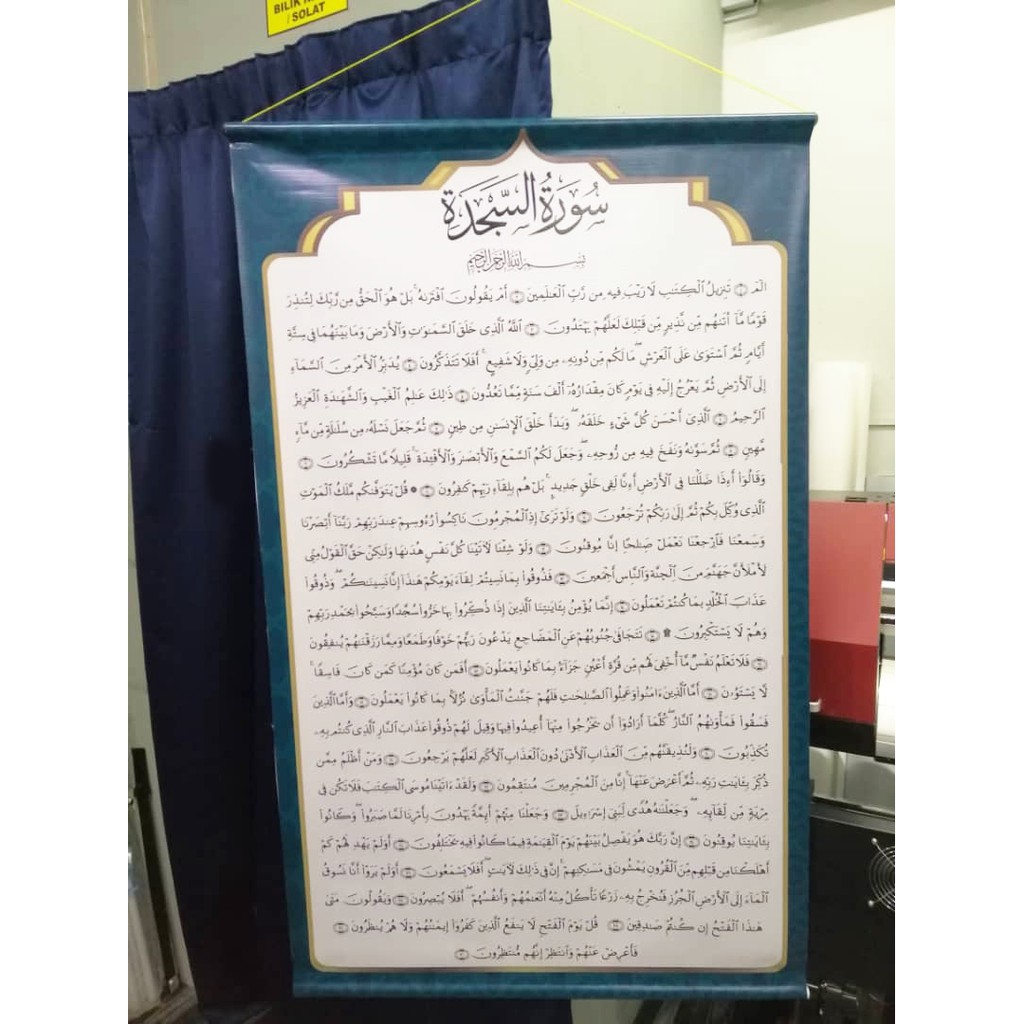 BILIK
/ SOLAT
سُورَةُ السَّجْدَةِ
بِسْمِ اللَّهِ الرَّحْمَٰنِ الرَّحِيمِ
الٓمٓ ۝ تَنزِيلُ ٱلْكِتَٰبِ لَا رَيْبَ فِيهِ مِن رَّبِّ ٱلْعَٰلَمِينَ ۝ أَمْ يَقُولُونَ ٱفْتَرَىٰهُ ۚ بَلْ هُوَ ٱلْحَقُّ مِن رَّبِّكَ لِتُنذِرَ
قَوْمًا مَّآ أَتَىٰهُم مِّن نَّذِيرٍ مِّن قَبْلِكَ لَعَلَّهُمْ يَهْتَدُونَ ۝ ٱللَّهُ ٱلَّذِى خَلَقَ ٱلسَّمَٰوَٰتِ وَٱلْأَرْضَ وَمَا بَيْنَهُمَا فِى سِتَّةِ
أَيَّامٍ ثُمَّ ٱسْتَوَىٰ عَلَى ٱلْعَرْشِ ۖ مَا لَكُم مِّن دُونِهِۦ مِن وَلِىٍّ وَلَا شَفِيعٍ ۚ أَفَلَا تَتَذَكَّرُونَ ۝ يُدَبِّرُ ٱلْأَمْرَ مِنَ ٱلسَّمَآءِ
إِلَى ٱلْأَرْضِ ثُمَّ يَعْرُجُ إِلَيْهِ فِى يَوْمٍ كَانَ مِقْدَارُهُۥٓ أَلْفَ سَنَةٍ مِّمَّا تَعُدُّونَ ۝ ذَٰلِكَ عَٰلِمُ ٱلْغَيْبِ وَٱلشَّهَٰدَةِ ٱلْعَزِيزُ
ٱلرَّحِيمُ ۝ ٱلَّذِىٓ أَحْسَنَ كُلَّ شَىْءٍ خَلَقَهُۥ ۖ وَبَدَأَ خَلْقَ ٱلْإِنسَٰنِ مِن طِينٍ ۝ ثُمَّ جَعَلَ نَسْلَهُۥ مِن سُلَٰلَةٍ مِّن مَّآءٍ
مَّهِينٍ ۝ ثُمَّ سَوَّىٰهُ وَنَفَخَ فِيهِ مِن رُّوحِهِۦ ۖ وَجَعَلَ لَكُمُ ٱلسَّمْعَ وَٱلْأَبْصَٰرَ وَٱلْأَفْـِٔدَةَ ۚ قَلِيلًا مَّا تَشْكُرُونَ ۝
وَقَالُوٓا۟ أَءِذَا ضَلَلْنَا فِى ٱلْأَرْضِ أَءِنَّا لَفِى خَلْقٍ جَدِيدٍۭ ۚ بَلْ هُم بِلِقَآءِ رَبِّهِمْ كَٰفِرُونَ ۝ ۞ قُلْ يَتَوَفَّىٰكُم مَّلَكُ ٱلْمَوْتِ
ٱلَّذِى وُكِّلَ بِكُمْ ثُمَّ إِلَىٰ رَبِّكُمْ تُرْجَعُونَ ۝ وَلَوْ تَرَىٰٓ إِذِ ٱلْمُجْرِمُونَ نَاكِسُوا۟ رُءُوسِهِمْ عِندَ رَبِّهِمْ رَبَّنَآ أَبْصَرْنَا
وَسَمِعْنَا فَٱرْجِعْنَا نَعْمَلْ صَٰلِحًا إِنَّا مُوقِنُونَ ۝ وَلَوْ شِئْنَا لَءَاتَيْنَا كُلَّ نَفْسٍ هُدَىٰهَا وَلَٰكِنْ حَقَّ ٱلْقَوْلُ مِنِّى
لَأَمْلَأَنَّ جَهَنَّمَ مِنَ ٱلْجِنَّةِ وَٱلنَّاسِ أَجْمَعِينَ ۝ فَذُوقُوا۟ بِمَا نَسِيتُمْ لِقَآءَ يَوْمِكُمْ هَٰذَآ إِنَّا نَسِينَٰكُمْ ۖ وَذُوقُوا۟
عَذَابَ ٱلْخُلْدِ بِمَا كُنتُمْ تَعْمَلُونَ ۝ إِنَّمَا يُؤْمِنُ بِـَٔايَٰتِنَا ٱلَّذِينَ إِذَا ذُكِّرُوا۟ بِهَا خَرُّوا۟ سُجَّدًا وَسَبَّحُوا۟ بِحَمْدِ رَبِّهِمْ
وَهُمْ لَا يَسْتَكْبِرُونَ ۩ ۝ تَتَجَافَىٰ جُنُوبُهُمْ عَنِ ٱلْمَضَاجِعِ يَدْعُونَ رَبَّهُمْ خَوْفًا وَطَمَعًا وَمِمَّا رَزَقْنَٰهُمْ يُنفِقُونَ
۝ فَلَا تَعْلَمُ نَفْسٌ مَّآ أُخْفِىَ لَهُم مِّن قُرَّةِ أَعْيُنٍ جَزَآءًۢ بِمَا كَانُوا۟ يَعْمَلُونَ ۝ أَفَمَن كَانَ مُؤْمِنًا كَمَن كَانَ فَاسِقًا ۚ
لَّا يَسْتَوُۥنَ ۝ أَمَّا ٱلَّذِينَ ءَامَنُوا۟ وَعَمِلُوا۟ ٱلصَّٰلِحَٰتِ فَلَهُمْ جَنَّٰتُ ٱلْمَأْوَىٰ نُزُلًۢا بِمَا كَانُوا۟ يَعْمَلُونَ ۝ وَأَمَّا ٱلَّذِينَ
فَسَقُوا۟ فَمَأْوَىٰهُمُ ٱلنَّارُ ۖ كُلَّمَآ أَرَادُوٓا۟ أَن يَخْرُجُوا۟ مِنْهَآ أُعِيدُوا۟ فِيهَا وَقِيلَ لَهُمْ ذُوقُوا۟ عَذَابَ ٱلنَّارِ ٱلَّذِى كُنتُم بِهِۦ
تُكَذِّبُونَ ۝ وَلَنُذِيقَنَّهُم مِّنَ ٱلْعَذَابِ ٱلْأَدْنَىٰ دُونَ ٱلْعَذَابِ ٱلْأَكْبَرِ لَعَلَّهُمْ يَرْجِعُونَ ۝ وَمَنْ أَظْلَمُ مِمَّن
ذُكِّرَ بِـَٔايَٰتِ رَبِّهِۦ ثُمَّ أَعْرَضَ عَنْهَآ ۚ إِنَّا مِنَ ٱلْمُجْرِمِينَ مُنتَقِمُونَ ۝ وَلَقَدْ ءَاتَيْنَا مُوسَى ٱلْكِتَٰبَ فَلَا تَكُن فِى
مِرْيَةٍ مِّن لِّقَآئِهِۦ ۖ وَجَعَلْنَٰهُ هُدًى لِّبَنِىٓ إِسْرَٰٓءِيلَ ۝ وَجَعَلْنَا مِنْهُمْ أَئِمَّةً يَهْدُونَ بِأَمْرِنَا لَمَّا صَبَرُوا۟ ۖ وَكَانُوا۟
بِـَٔايَٰتِنَا يُوقِنُونَ ۝ إِنَّ رَبَّكَ هُوَ يَفْصِلُ بَيْنَهُمْ يَوْمَ ٱلْقِيَٰمَةِ فِيمَا كَانُوا۟ فِيهِ يَخْتَلِفُونَ ۝ أَوَلَمْ يَهْدِ لَهُمْ كَمْ
أَهْلَكْنَا مِن قَبْلِهِم مِّنَ ٱلْقُرُونِ يَمْشُونَ فِى مَسَٰكِنِهِمْ ۚ إِنَّ فِى ذَٰلِكَ لَءَايَٰتٍ ۖ أَفَلَا يَسْمَعُونَ ۝ أَوَلَمْ يَرَوْا۟ أَنَّا نَسُوقُ
ٱلْمَآءَ إِلَى ٱلْأَرْضِ ٱلْجُرُزِ فَنُخْرِجُ بِهِۦ زَرْعًا تَأْكُلُ مِنْهُ أَنْعَٰمُهُمْ وَأَنفُسُهُمْ ۖ أَفَلَا يُبْصِرُونَ ۝ وَيَقُولُونَ مَتَىٰ
هَٰذَا ٱلْفَتْحُ إِن كُنتُمْ صَٰدِقِينَ ۝ قُلْ يَوْمَ ٱلْفَتْحِ لَا يَنفَعُ ٱلَّذِينَ كَفَرُوٓا۟ إِيمَٰنُهُمْ وَلَا هُمْ يُنظَرُونَ ۝
فَأَعْرِضْ عَنْهُمْ وَٱنتَظِرْ إِنَّهُم مُّنتَظِرُونَ ۝